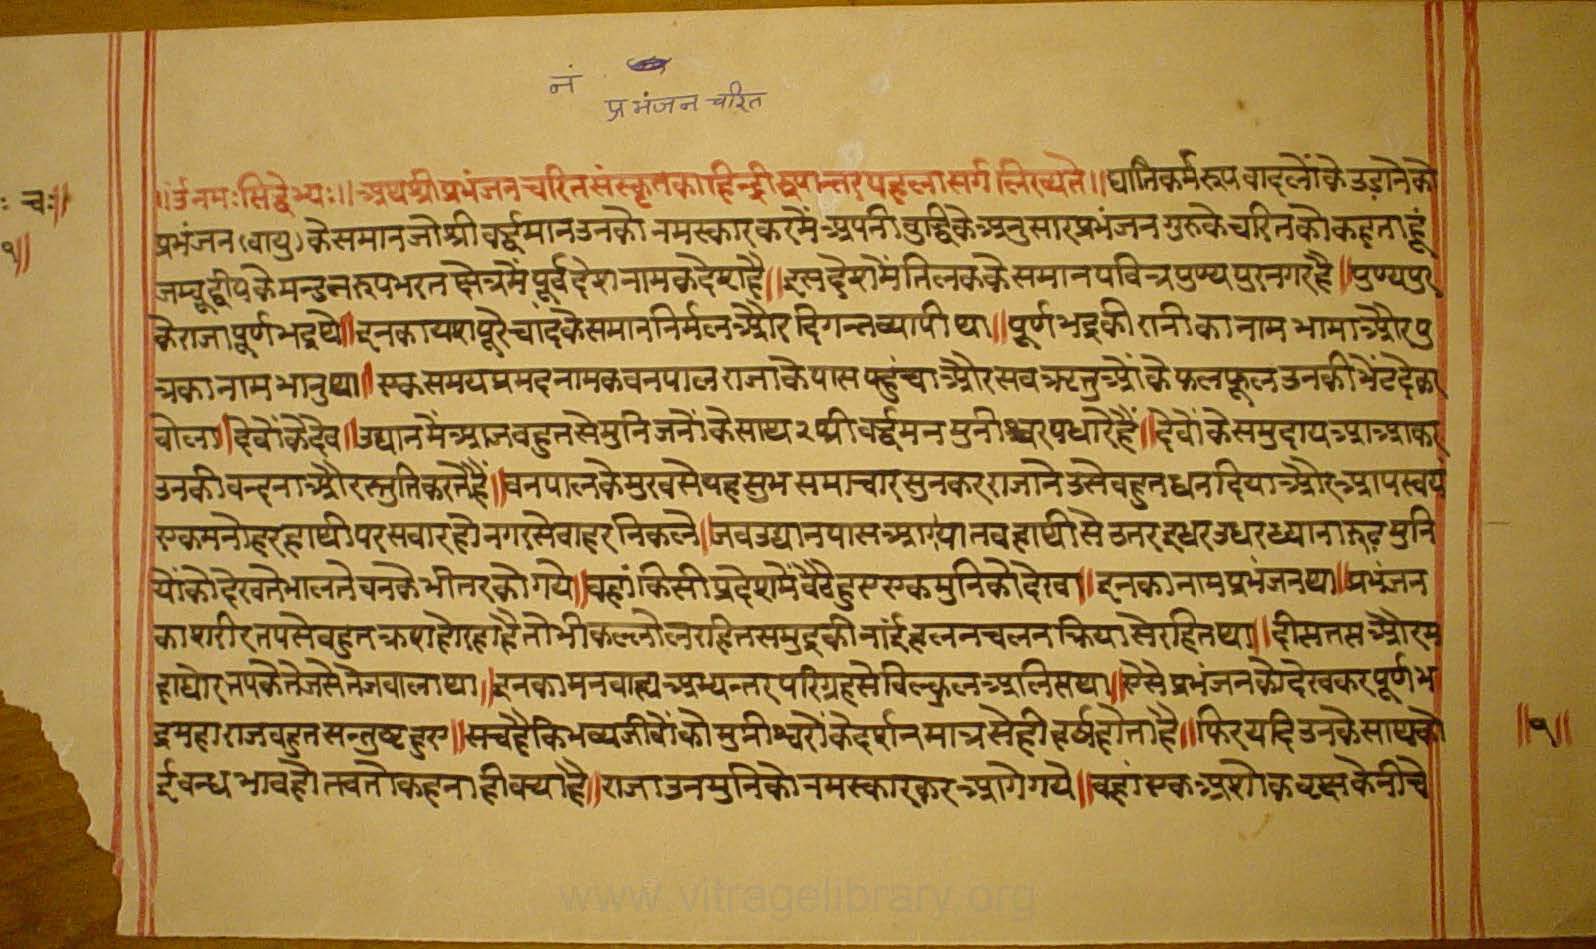 नं
प्रभंजन चरित
॥ॐ नमः सिद्धेभ्यः॥ अथ श्री प्रभंजन चरित संस्कृत का हिन्दी रुपान्तर पहला सर्ग लिख्यते॥ घाति कर्म रुप वादलों के उड़ाने को
प्रभंजन (वायु) के समान जो श्री वर्द्धमान उनको नमस्कार कर में अपनी वुद्धि के अनुसार प्रभंजन गुरु के चरित को कहता हूं
जम्वूद्वीप के मन्डन रुप भरत क्षेत्र में पूर्व देश नामक देश है॥ इस देश में तिलक के समान पवित्र पुण्यपुर नगर है॥ पुण्यपुर
के राजा पूर्णभद्र थे॥ इनका यश पूरे चांद के समान निर्मल और दिगन्त व्यापी था॥ पूर्णभद्र की रानी का नाम भामा और पु
त्र का नाम भानु था॥ एक समय प्रमद नामक वनपाल राजा के पास पहुंचा और सव ऋतुओं के फल फूल उनकी भेंट देकर
वोला॥ देवों के देव॥ उद्यान में आज वहुत से मुनि जनों के साथ २ श्री वर्द्धमन मुनीश्वर पधारे हैं॥ देवों के समुदाय आ आकर
उनकी वन्दना और स्तुति करते हैं॥ वनपाल के मुख से यह सुभ समाचार सुनकर राजा ने उसे वहुत धन दिया और आप स्वयं
एक मनोहर हाथी पर सवार हो नगर से वाहर निकले॥ जव उद्यान पास आगया तव हाथी से उतर इधर उधर ध्यानारुढ़ मुनि
यों को देखते भालते वन के भीतर को गये॥ वहां किसी प्रदेश में वैठे हुए एक मुनि को देखा॥ इनका नाम प्रभंजन था॥ प्रभंजन
का शरीर तप से वहुत क्रश हो रहा है तो भी कल्लोल रहित समुद्र की नांई हलन चलन क्रिया से रहित था॥ दीप्त तप्त और म
हाघोर तप के तेज से तेजवाला था॥ इनका मन वाह्य अभ्यन्तर परिग्रह से विल्कुल अलिप्त था॥ ऐसे प्रभंजन को देखकर पूर्णभ
द्र महाराज वहुत सन्तुष्ट हुए॥ सच है कि भव्य जीवों को मुनीश्वरों के दर्शन मात्र से ही हर्ष होता है॥ फिर यदि उनके साथ को
ई वन्धभाव हो तव तो कहना ही क्या है॥ राजा उन मुनि को नमस्कार कर आगे गये॥ वहां एक अशोक वृक्ष के नीचे
: च:॥
१॥
॥१॥
www.vitragelibrary.org